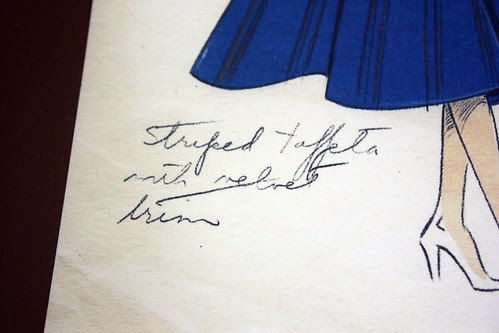 striped taffeta
with velvet
trim